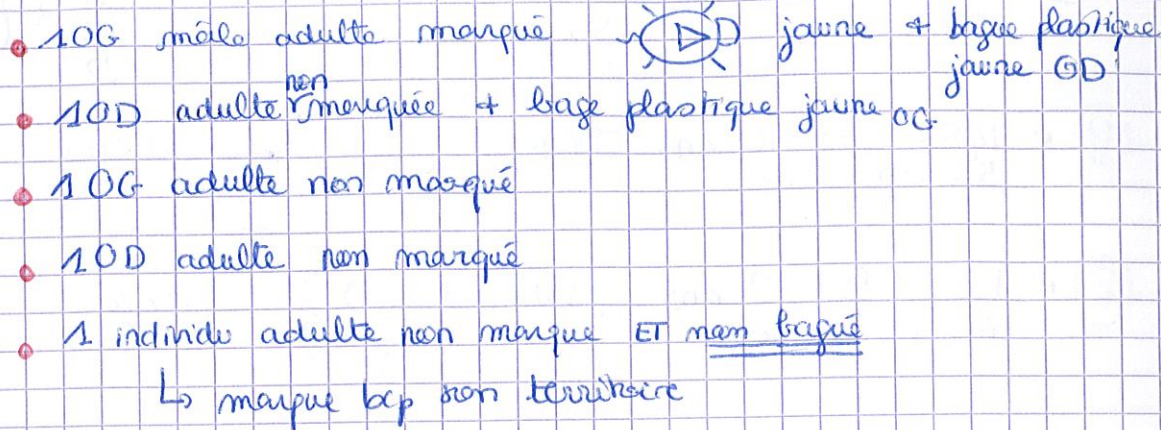 1OG mâle adulte marqué D jaune + bague plastique
jaune OD
1OD adulte non marquée + bage plastique jaune OG
1OG adulte non marqué
1OD adulte non marqué
1 individu adulte non marqué ET non bagué
↳ marque bcp son territoire